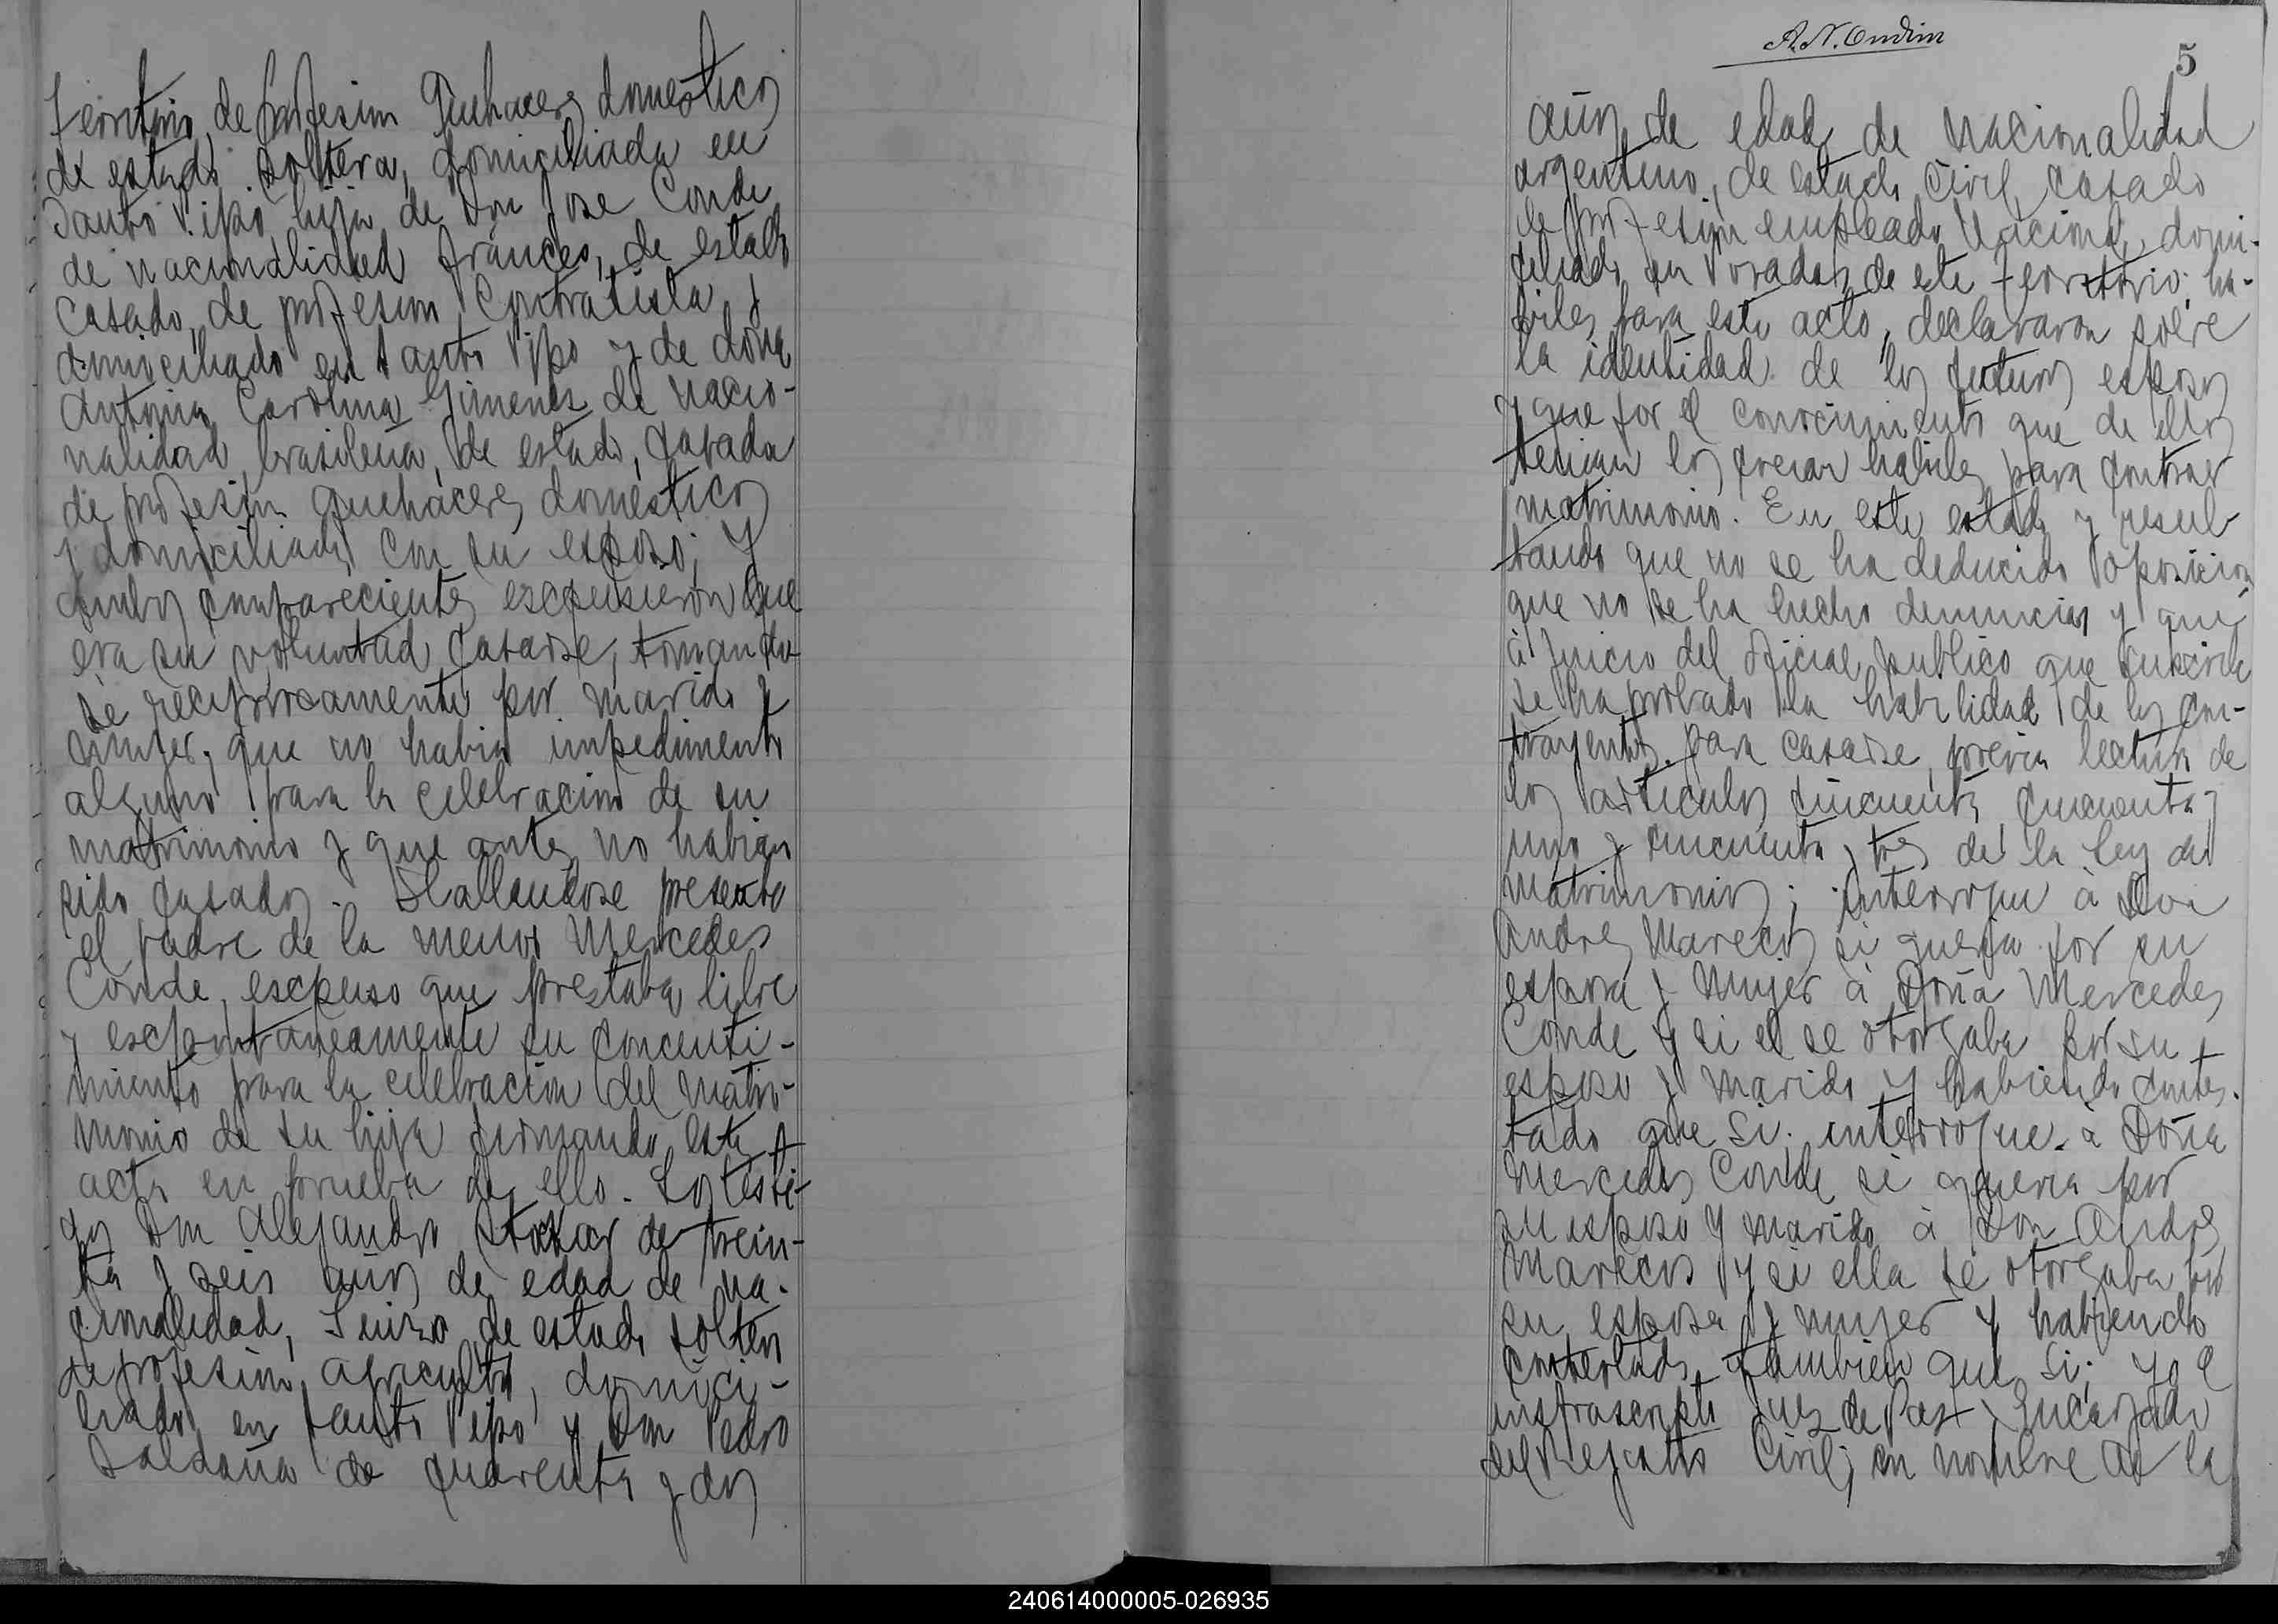 Territorio, de profesion Quehaceres domesticos
de estado soltera, domiciliada en
Santo Pipó hija de Don Jose Conde
de nacionalidad francés, de estado
casado, de profesion Contratista y
domiciliado en Santo Pipo y de doña
Antonia Carolina Gimenez de nacio-
nalidad brasilena, de estado, casada
de profesion quehaceres domésticos
y domiciliada con su esposo; y
ambos comparecientes escpusieron que
era su voluntad casarse, tomando
se reciprocamente por marido y
mujer, que no habia impedimento
alguno para la celebracion de su
matrimonio y que antes no habian
sido casados. Hallandose presente
el padre de la menor Mercedes
Conde, escpuso que prestaba libre
y escpontaneamente su concenti-
miento para la celebracion del matri-
monio de su hija firmando esta
acta en prueba de ello. Los testi-
gos Don Alejandro de trein-
ta y seis años de edad de na-
cionalidad, Suizo de estado soltero
de profesion agricultor, domici-
liado en Santo Pipó y Don Pedro
Saldaña de cuarenta y dos
A. N. Ondim
5
años de edad de nacionalidad
argentino, de estado Civil, casado
de profesion empleado Nacional, domi-
ciliado en Posadas de este Territorio; ha-
biles para este acto, declararon sobre
la identidad de los futuros esposos
y que por el conocimiento que de ellos
tenian los creian habiles para contraer
matrimonio. En este estado y resul-
tando que no se ha deducido oposicion
que no se ha hecho denuncias y que
à juicio del oficial publico que suscribe
se ha probado la habilidad de los con-
trayentes para casarse, previa lectura de
los articulos cincuenta, cincuenta y
uno y cincuenta y tres de la ley de
matrimonio; interrogue à Don
Andres Marecos si queria por su
esposa y mujer à Doña Mercedes
Conde y si el se otorgaba por su
esposo y marido y habiendo contes-
tado que si. interrogue à Doña
Mercedes Conde si queria por
su esposo y marido à Don Andres
Marecos y si ella se otorgaba por
su esposa y mujer y habiendo
contestado tambien que si; yo el
infrascripto Juez de Paz Encargado
del Registro Civil; en nombre de la
240614000005-026935